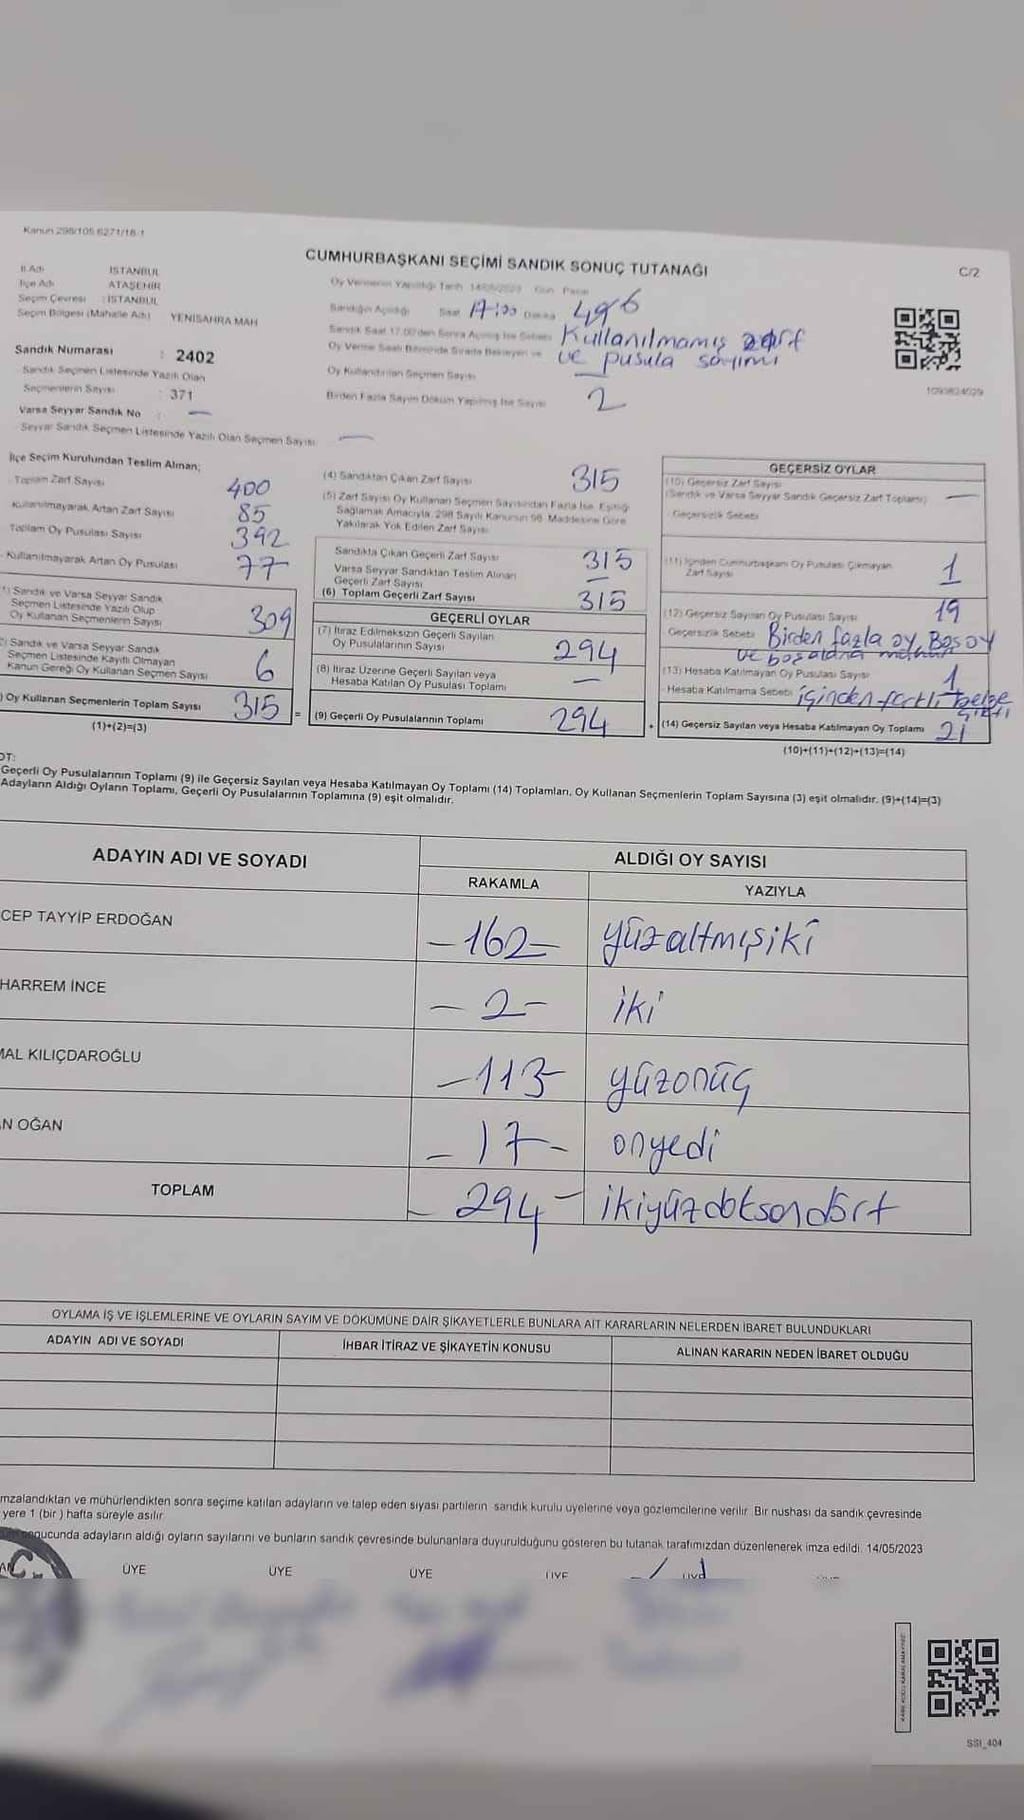 Kanun 298/105 6271/18-1
CUMHURBAŞKANI SEÇİMİ SANDIK SONUÇ TUTANAĞI
C/2
İl Adı İSTANBUL
İlçe Adı ATAŞEHİR
Seçim Çevresi : İSTANBUL
Seçim Bölgesi (Mahalle Adı) YENİSAHRA MAH
Sandık Numarası : 2402
Sandık Seçmen Listesinde Yazılı Olan
Seçmenlerin Sayısı : 371
Varsa Seyyar Sandık No —
Seyyar Sandık Seçmen Listesinde Yazılı Olan Seçmen Sayısı —
Oy Vermenin Yapıldığı Tarih 14/05/2023 Gün Pazar
Sandığın Açıldığı Saat 17:00 Dakika
Sandık Saat 17.00'den Sonra Açılmış İse Sebebi Kullanılmamış zarf
ve pusula sayımı
Oy Verme Saati Bitiminde Sırada Bekleyen ve
Oy Kullandırılan Seçmen Sayısı —
Birden Fazla Sayım Döküm Yapılmış İse Sayısı 2
1093624029
İlçe Seçim Kurulundan Teslim Alınan;
Toplam Zarf Sayısı 400
Kullanılmayarak Artan Zarf Sayısı 85
Toplam Oy Pusulası Sayısı 392
Kullanılmayarak Artan Oy Pusulası 77
1) Sandık ve Varsa Seyyar Sandık
Seçmen Listesinde Yazılı Olup
Oy Kullanan Seçmenlerin Sayısı 309
2) Sandık ve Varsa Seyyar Sandık
Seçmen Listesinde Kayıtlı Olmayan
Kanun Gereği Oy Kullanan Seçmen Sayısı 6
) Oy Kullanan Seçmenlerin Toplam Sayısı 315 =
(1)+(2)=(3)
(4) Sandıktan Çıkan Zarf Sayısı 315
(5) Zarf Sayısı Oy Kullanan Seçmen Sayısından Fazla İse, Eşitliği
Sağlamak Amacıyla, 298 Sayılı Kanunun 98. Maddesine Göre
Yakılarak Yok Edilen Zarf Sayısı
Sandıkta Çıkan Geçerli Zarf Sayısı 315
Varsa Seyyar Sandıktan Teslim Alınan
Geçerli Zarf Sayısı —
(6) Toplam Geçerli Zarf Sayısı 315
GEÇERLİ OYLAR
(7) İtiraz Edilmeksizin Geçerli Sayılan
Oy Pusulalarının Sayısı 294
(8) İtiraz Üzerine Geçerli Sayılan veya
Hesaba Katılan Oy Pusulası Toplamı —
(9) Geçerli Oy Pusulalarının Toplamı 294 +
GEÇERSİZ OYLAR
(10) Geçersiz Zarf Sayısı
(Sandık ve Varsa Seyyar Sandık Geçersiz Zarf Toplamı) —
Geçersizlik Sebebi
(11) İçinden Cumhurbaşkanı Oy Pusulası Çıkmayan
Zarf Sayısı 1
(12) Geçersiz Sayılan Oy Pusulası Sayısı 19
Geçersizlik Sebebi Birden fazla oy, Boş oy
ve boş alana mühür
(13) Hesaba Katılmayan Oy Pusulası Sayısı 1
Hesaba Katılmama Sebebi içinden farklı belge
çıktı
(14) Geçersiz Sayılan veya Hesaba Katılmayan Oy Toplamı 21
(10)+(11)+(12)+(13)=(14)
OT:
Geçerli Oy Pusulalarının Toplamı (9) ile Geçersiz Sayılan veya Hesaba Katılmayan Oy Toplamı (14) Toplamları, Oy Kullanan Seçmenlerin Toplam Sayısına (3) eşit olmalıdır. (9)+(14)=(3)
Adayların Aldığı Oyların Toplamı, Geçerli Oy Pusulalarının Toplamına (9) eşit olmalıdır.
ADAYIN ADI VE SOYADI ALDIĞI OY SAYISI
RAKAMLA YAZIYLA
CEP TAYYİP ERDOĞAN -162- yüzaltmışiki
HARREM İNCE -2- iki
MAL KILIÇDAROĞLU -113- yüzonüç
N OĞAN -17- onyedi
TOPLAM -294- ikiyüzdoksandört
OYLAMA İŞ VE İŞLEMLERİNE VE OYLARIN SAYIM VE DÖKÜMÜNE DAİR ŞİKAYETLERLE BUNLARA AİT KARARLARIN NELERDEN İBARET BULUNDUKLARI
ADAYIN ADI VE SOYADI İHBAR İTİRAZ VE ŞİKAYETİN KONUSU ALINAN KARARIN NEDEN İBARET OLDUĞU
mzalandıktan ve mühürlendikten sonra seçime katılan adayların ve talep eden siyasi partilerin sandık kurulu üyelerine veya gözlemcilerine verilir. Bir nushası da sandık çevresinde
yere 1 (bir ) hafta süreyle asılır.
onucunda adayların aldığı oyların sayılarını ve bunların sandık çevresinde bulunanlara duyurulduğunu gösteren bu tutanak tarafımızdan düzenlenerek imza edildi. 14/05/2023
ÜYE ÜYE ÜYE ÜYE
SSI_404